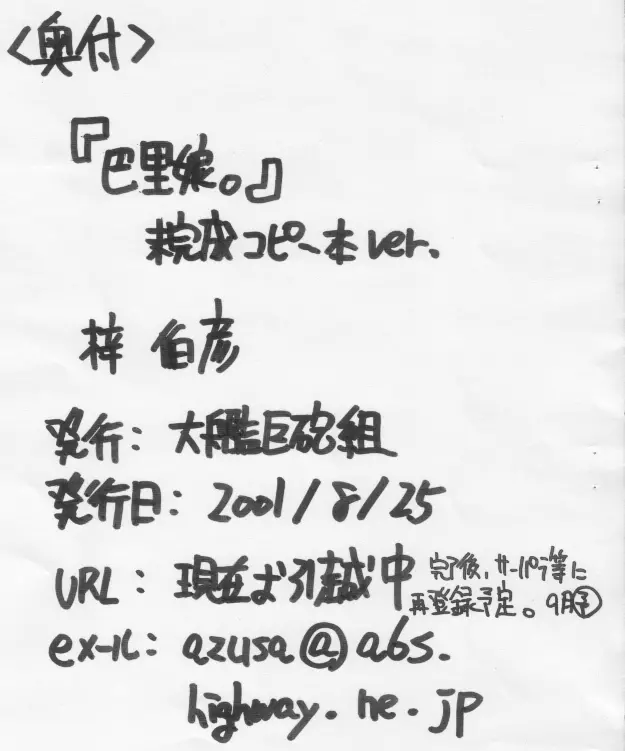 <奥付>
『巴里娘。』
未完成コピー本ver.
梓 伯彦
発行：大艦巨砲組
発行日：2001/8/25
URL：現在お引越中 完了後、サーパラ等に
再登録予定。9月予
eメール：azusa@abs.
highway.ne.jp